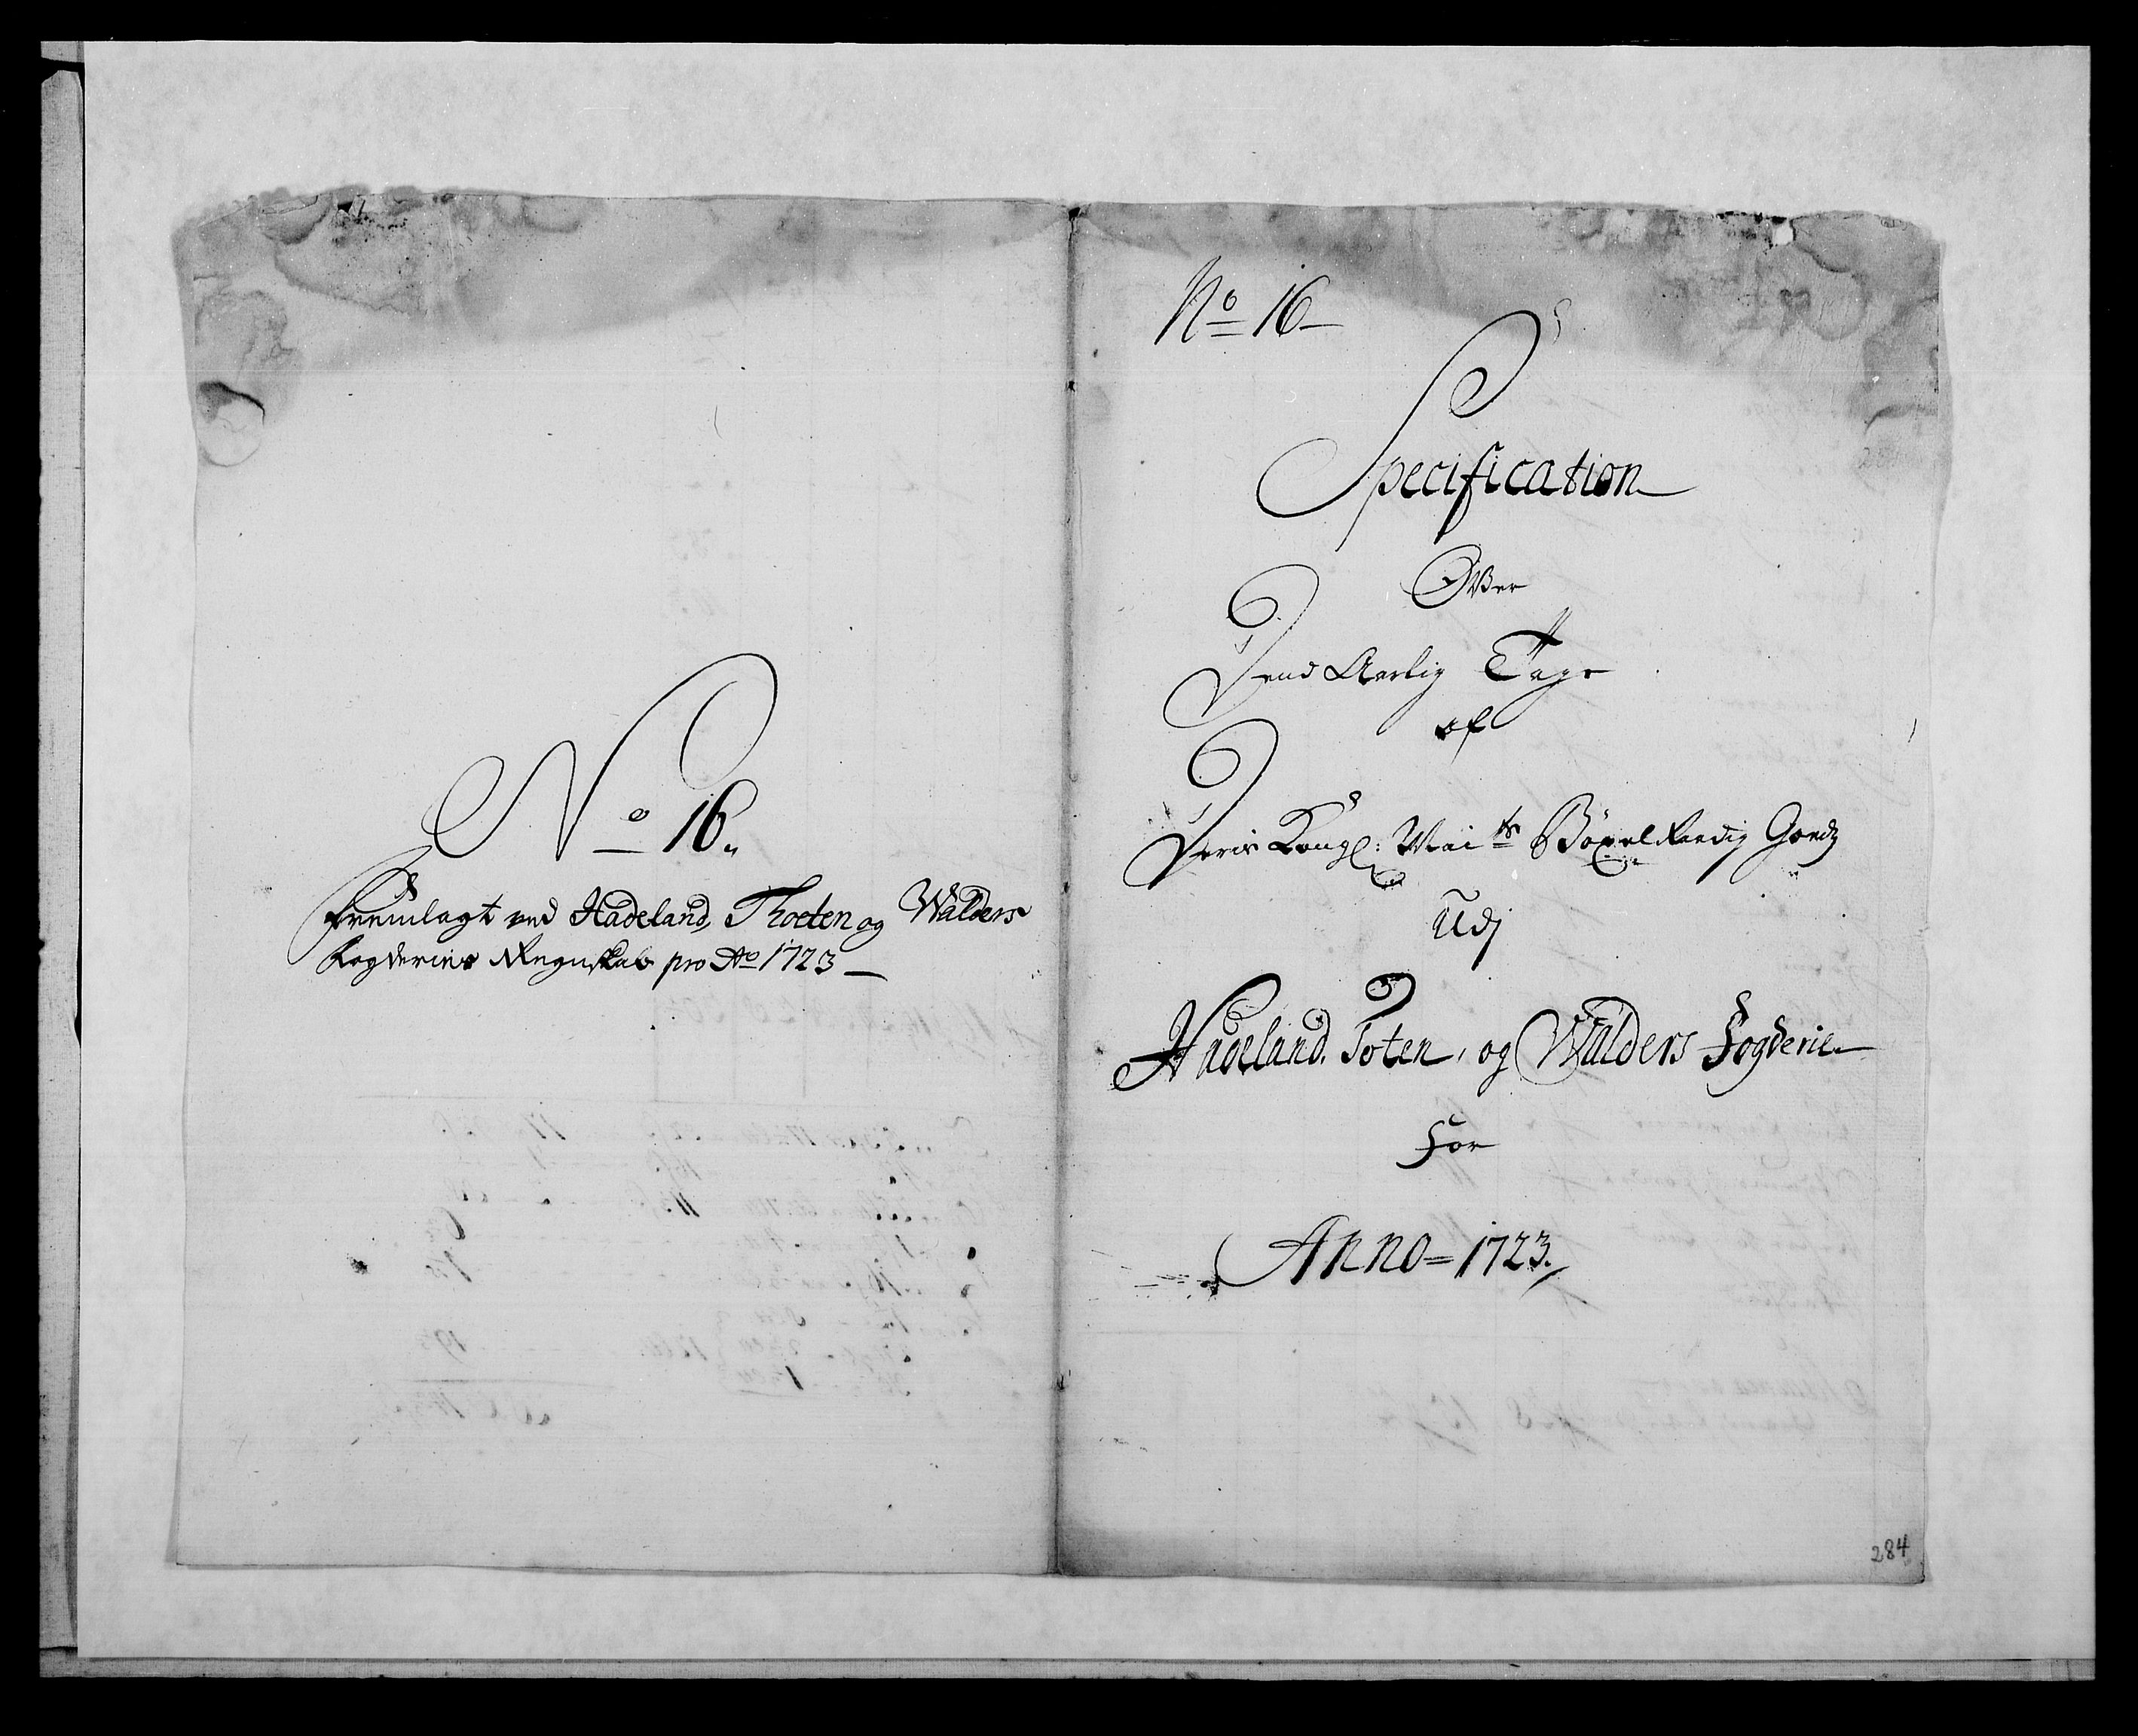 No 16.
Fremlagt ved Hadeland, Thoeten og Walders
Fogderies Regnskab pro Ao 1723
No 16
Specification
Over
Dend Aarlig Tage
af
Deris Kongl: Maits Böxel Raadig Goedz
Udj
Hadeland, Toten, og Walders Fogderie
For
Anno 1723.
284